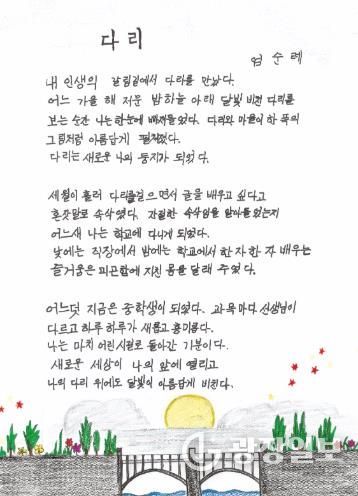 다리
엄순례
내 인생의 갈림길에서 다리를 만났다.
어느 가을 해 저문 밤하늘 아래 달빛 비친 다리를
보는 순간 나는 한눈에 빠져들었다. 다리와 마을이 한 폭의
그림처럼 아름답게 펼쳐졌다.
다리는 새로운 나의 둥지가 되었다.
세월이 흘러 다리를 걸으면서 글을 배우고 싶다고
혼잣말로 속삭였다. 간절한 속삭임을 알아들었는지
어느새 나는 학교에 다니게 되었다.
낮에는 직장에서 밤에는 학교에서 한 자 한 자 배우는
즐거움은 피곤함에 지친 몸을 달래 주었다.
어느덧 지금은 중학생이 되었다. 과목마다 선생님이
다르고 하루 하루가 새롭고 흥미롭다.
나는 마치 어린시절로 돌아간 기분이다.
새로운 세상이 나의 앞에 열리고
나의 다리 위에도 달빛이 아름답게 비친다.
광장일보